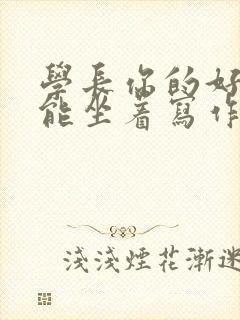 學長你的好
能坐着寫作
淺淺煙花漸迷